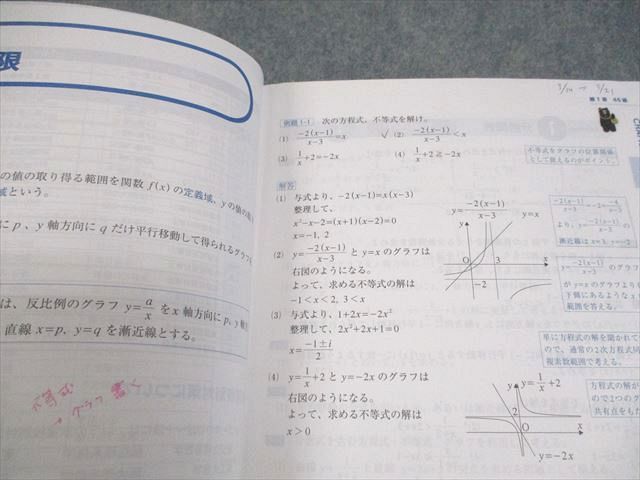 限
の値の取り得る範囲を関数 f(x) の定義域、yの値の
域という。
に p 、y 軸方向に q だけ平行移動して得られるグラフ
は、反比例のグラフ y=a/x を x 軸方向に p、y
直線 x=p、y=q を漸近線とする。
不等式
→ グラフ書く
3/14 → 3/21
第1章
例題 1-1 次の方程式、不等式を解け。
(1) −2(x−1)/(x−3)=x
✓(2) −2(x−1)/(x−3)<x
(3) 1/x+2=−2x
(4) 1/x+2≧−2x
解答
(1) 与式より、−2(x−1)=x(x−3)
整理して、
x²−x−2=(x+1)(x−2)=0
x=−1, 2
(2) y=−2(x−1)/(x−3) と y=x のグラフは
右図のようになる。
よって、求める不等式の解は
−1<x<2, 3<x
(3) 与式より、1+2x=−2x²
整理して、2x²+2x+1=0
x=(−1±i)/2
(4) y=1/x+2 と y=−2x のグラフは
右図のようになる。
よって、求める不等式の解は
x>0
y=−2(x−1)/(x−3)
y=x
y
O
3
x
−2
y=1/x+2
y
2
O
x
y=−2x
不等式をグラフの位置関係
として捉えるのがポイント。
−2(x−1)/(x−3)=−2−4/
より、y=−2(x−1)/(x−3) の
漸近線は x=3, y=−2
y=−2(x−1)/(x−3) のグラフ
が y=x のグラフより
下側にあるような x
範囲を答える。
単に方程式の解を聞かれて
ので、通常の2次方程式同
複素数範囲で考える。
方程式の解が
ので2つのグ
共有点をもた